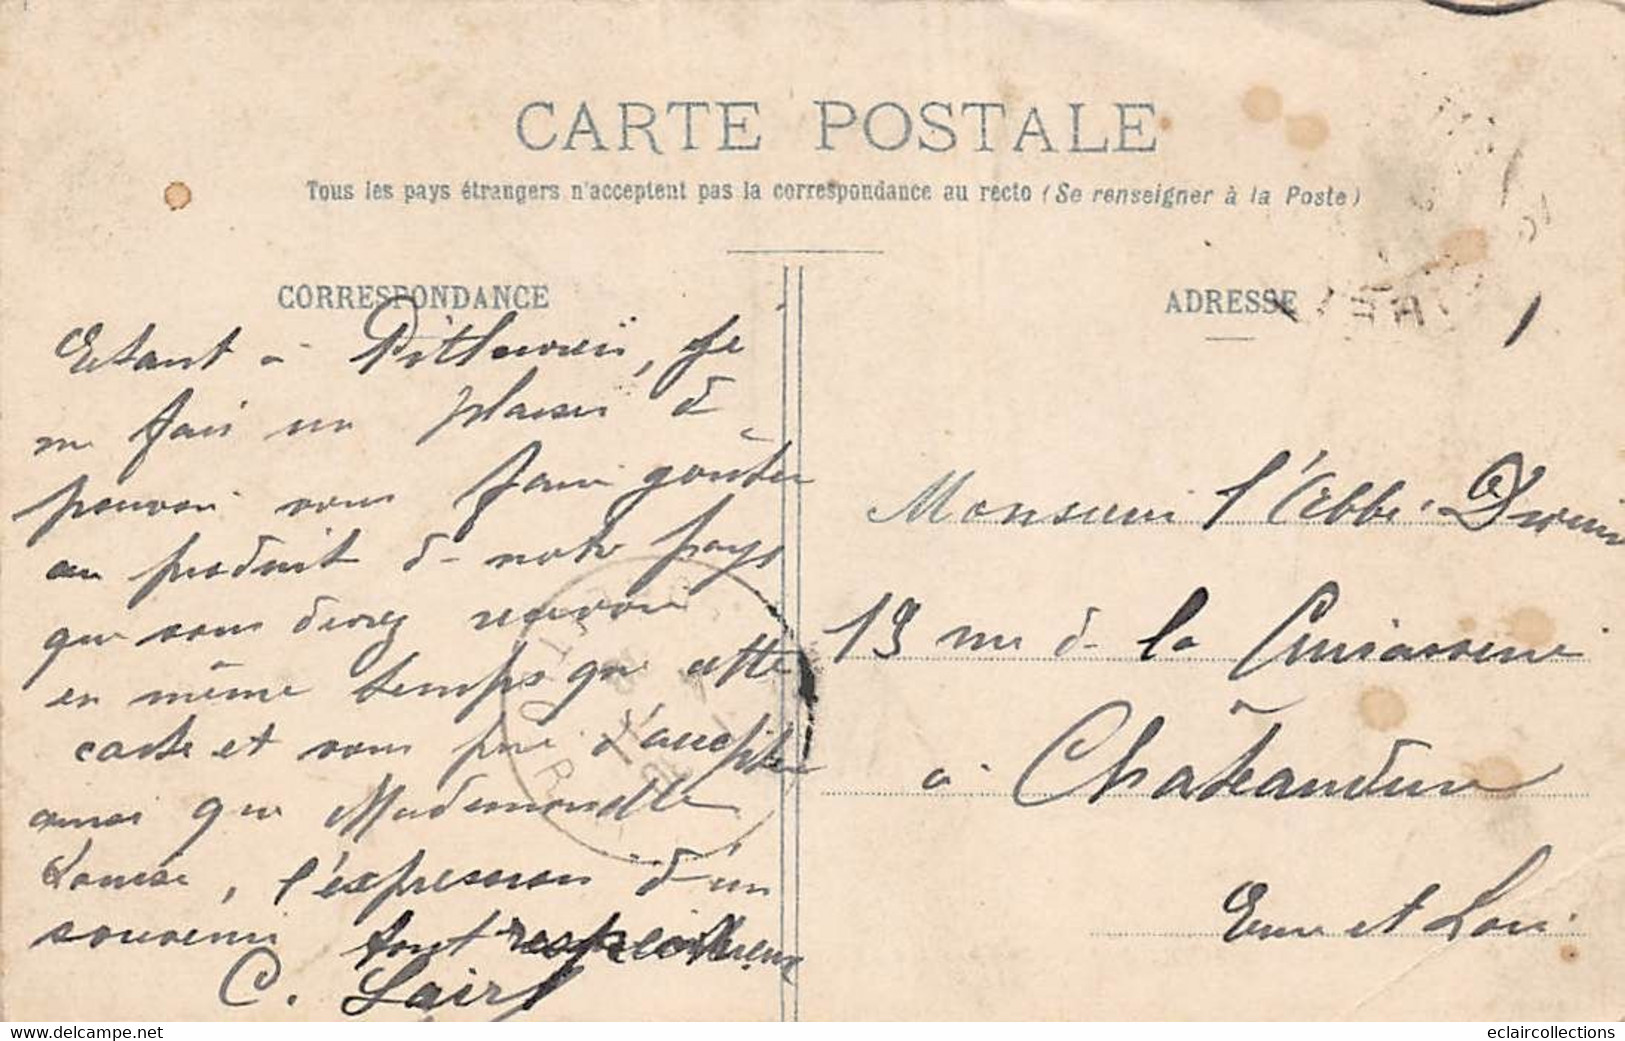 CARTE POSTALE
Tous les pays étrangers n'acceptent pas la correspondance au recto (Se renseigner à la Poste)
CORRESPONDANCE
ADRESSE
Etant à je
me fais un plaisir de
pouvoir vous faire goûter
au produit de notre pays
que vous devez recevoir
en même temps que cette
carte et vous prie d'accepter
ainsi que Mademoiselle
Louise, l'expression d'un
souvenir tout respectueux
C.
Monsieur l'Abbé
19 rue de la
à Châteaudun
Eure et Loir
eclaircollections
www.delcampe.net